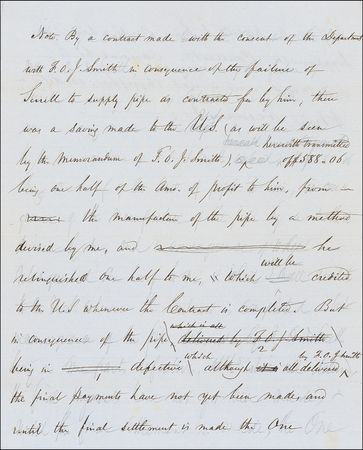 Note. By a contract made with the consent of the Department
with F. O. J. Smith in consequence of the failure of
Serrell to supply pipe as contracted for by him, there
was a saving made to the U.S. (as will be seen
herewith transmitted
by the Memorandum of F. O. J. Smith) of $588-06
being one half of the Amo. of profit to him, from
the manufacture of the pipe by a method
devised by me, and he
relinquished one half to me, which will be credited
to the U S whenever the Contract is completed. But
in consequence of the pipe which is all delivered by F. O. J. Smith
being in defective which although it is all delivered by F. O. J. Smith
the final payments have not yet been made, and
until the final settlement is made the One
One